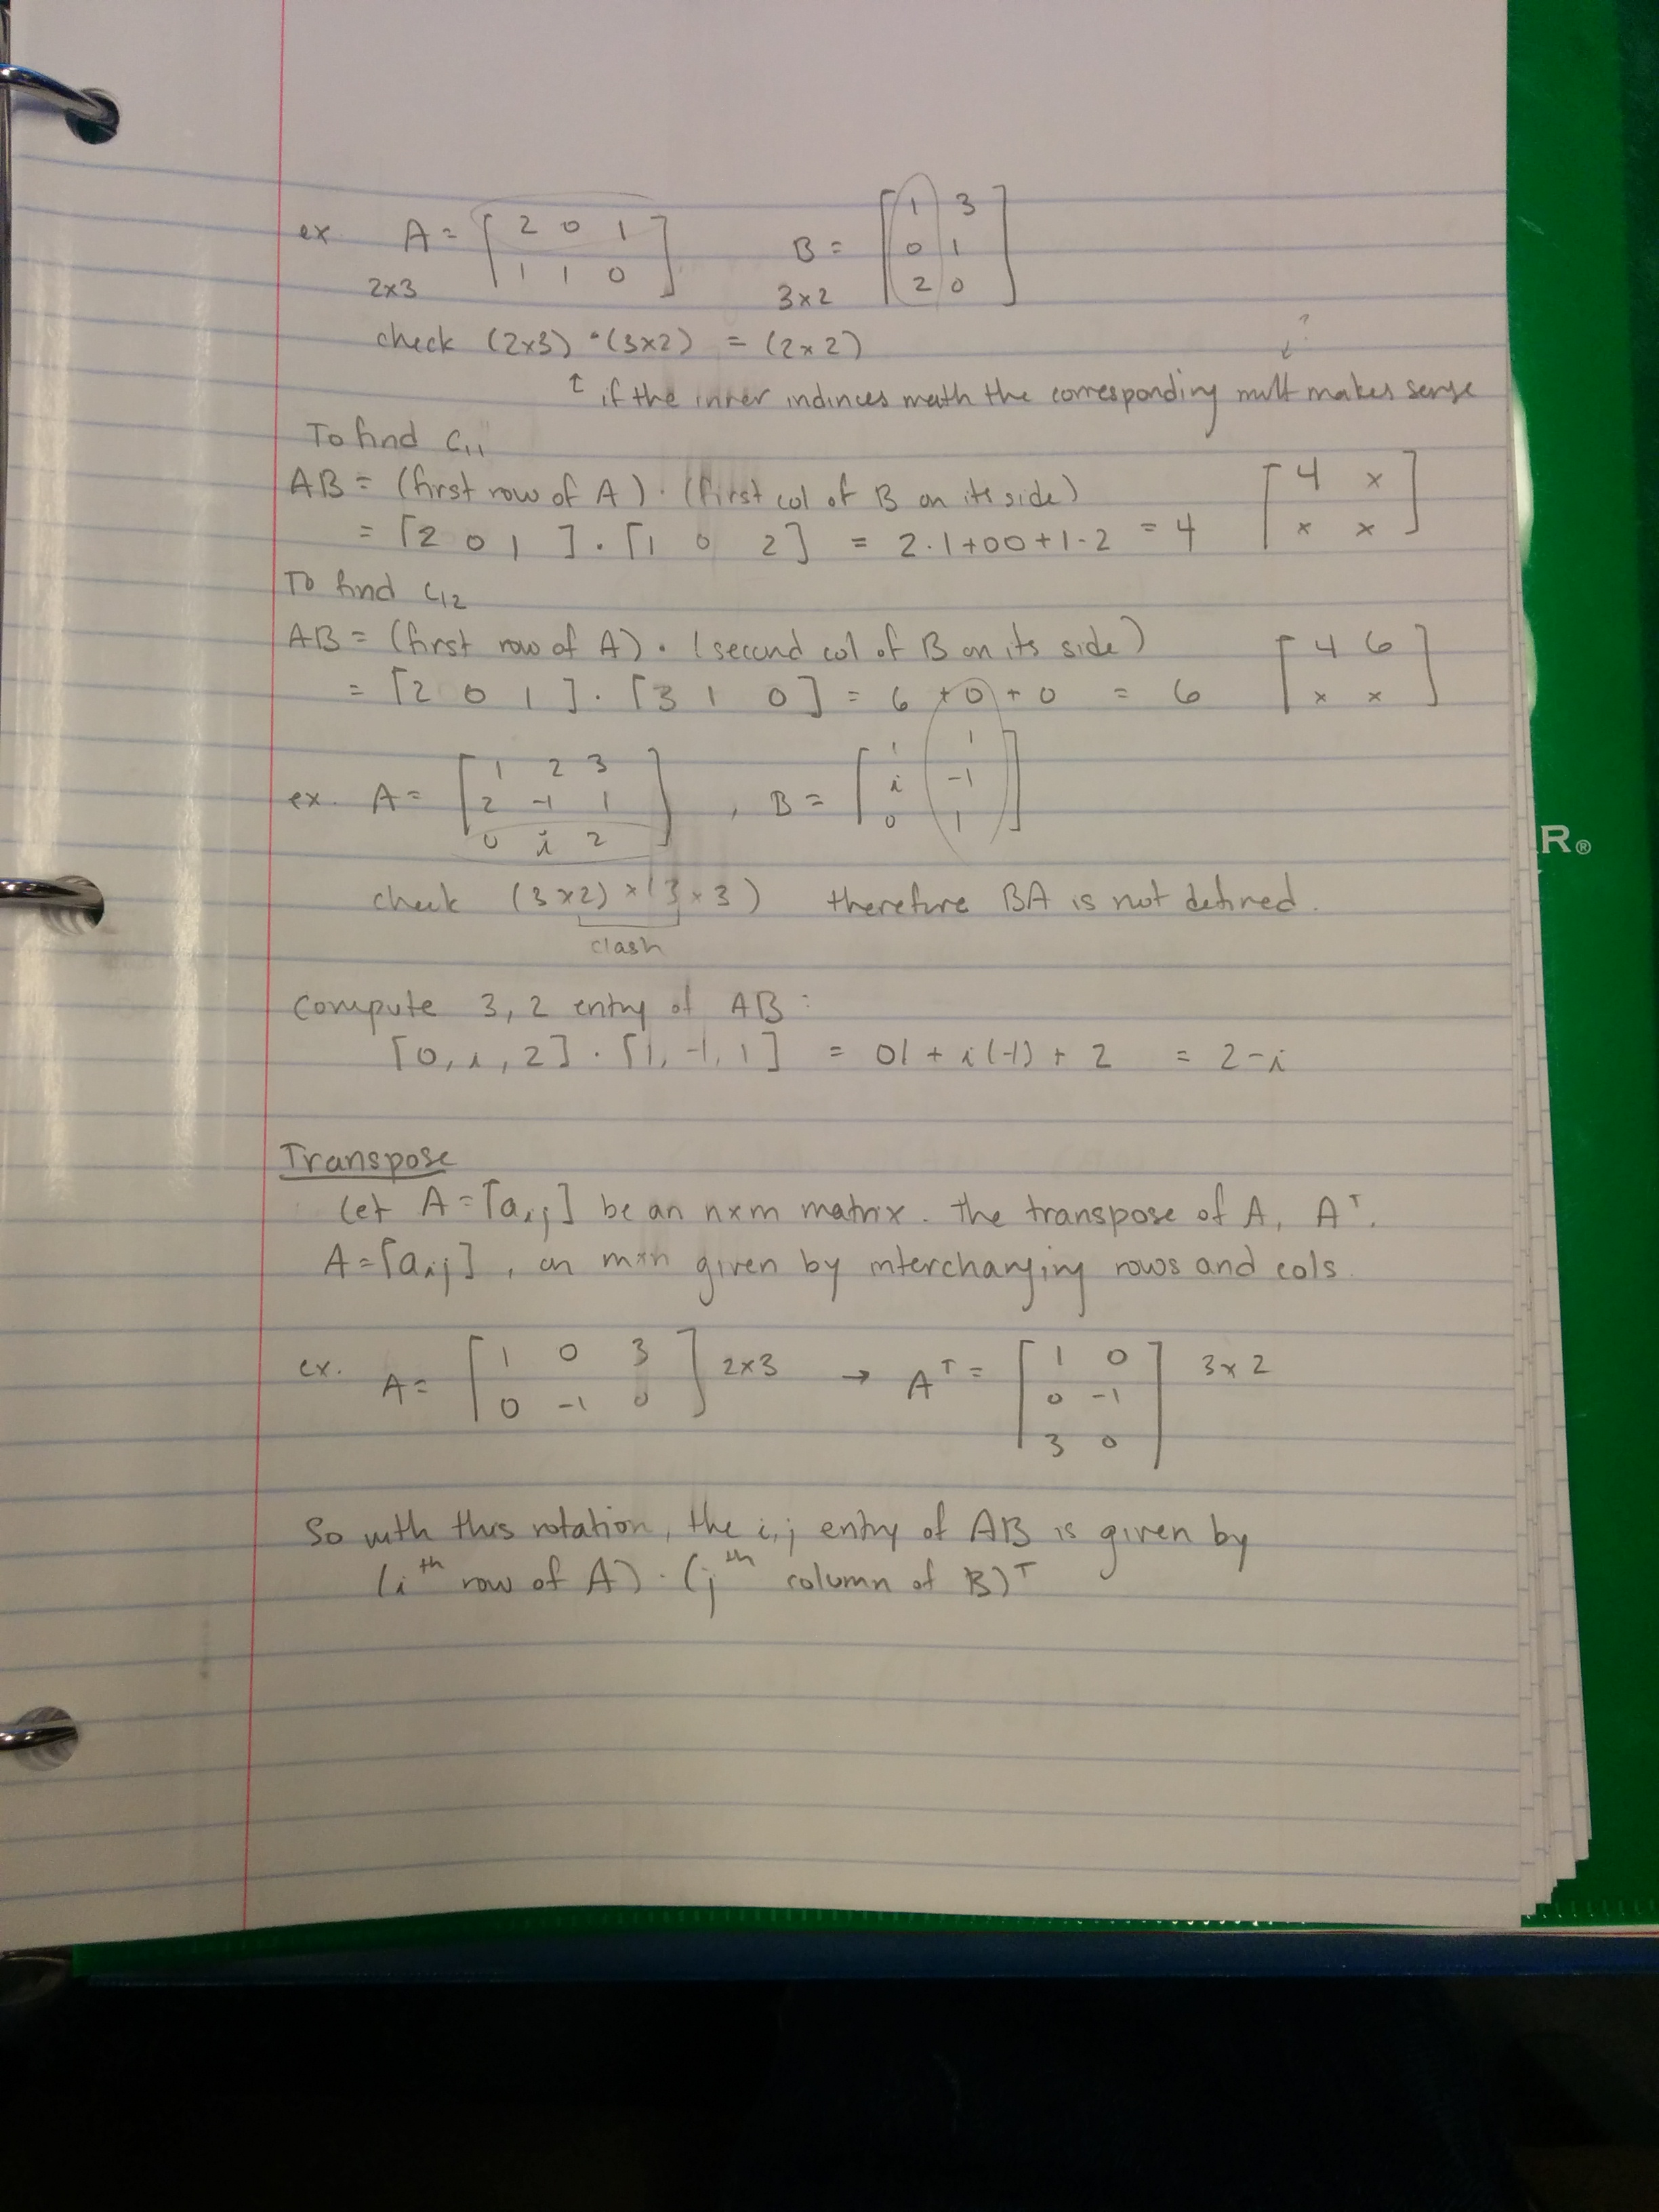 ex A = [ 2 0 1 B = [ 1 3
1 1 0 ] 0 1
2x3 3x2 2 0 ]
check (2x3) · (3x2) = (2x2)
↑ if the inner indinces math the corresponding mult makes sense
?
To find c11
AB = (first row of A) · (first col of B on its side) [ 4 x
= [2 0 1 ] · [1 0 2] = 2·1+00+1·2 = 4 x x ]
To find c12
AB = (first row of A) · (second col of B on its side) [ 4 6
= [2 0 1 ] · [3 1 0] = 6 + 0 + 0 = 6 x x ]
ex. A = [ 1 2 3 , B = [ 1 1
2 -1 1 i -1
0 i 2 ] 0 1 ]
check (3x2) x (3x3) therefore BA is not defined.
clash
compute 3,2 entry of AB:
[0, i, 2] · [1, -1, 1] = 01 + i(-1) + 2 = 2-i
Transpose
Let A = [aij] be an nxm matrix. the transpose of A, Aᵀ.
A = [aij], an mxn given by interchanging rows and cols.
ex. A = [ 1 0 3 2x3 → Aᵀ = [ 1 0 3x2
0 -1 0 ] 0 -1
3 0 ]
So with this rotation, the i,j entry of AB is given by
(iᵗʰ row of A) · (jᵗʰ column of B)ᵀ
R®